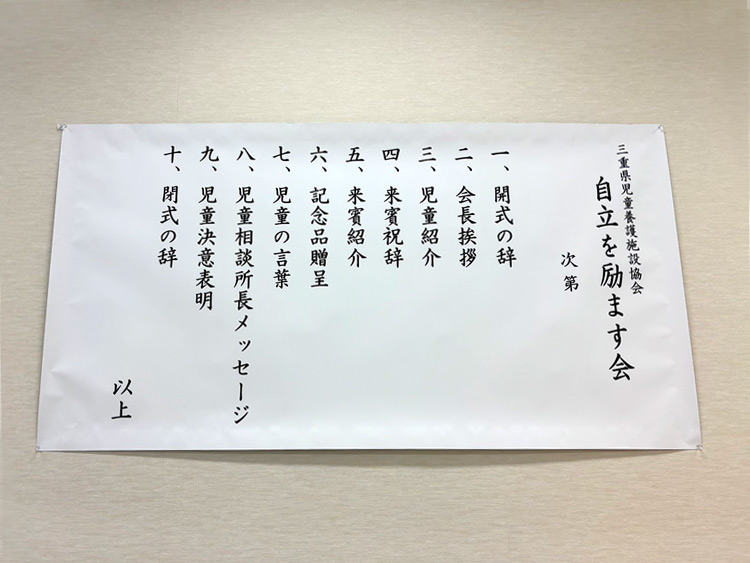 三重県児童養護施設協会
自立を励ます会
次第
一、開式の辞
二、会長挨拶
三、児童紹介
四、来賓祝辞
五、来賓紹介
六、記念品贈呈
七、児童の言葉
八、児童相談所長メッセージ
九、児童決意表明
十、閉式の辞
以上